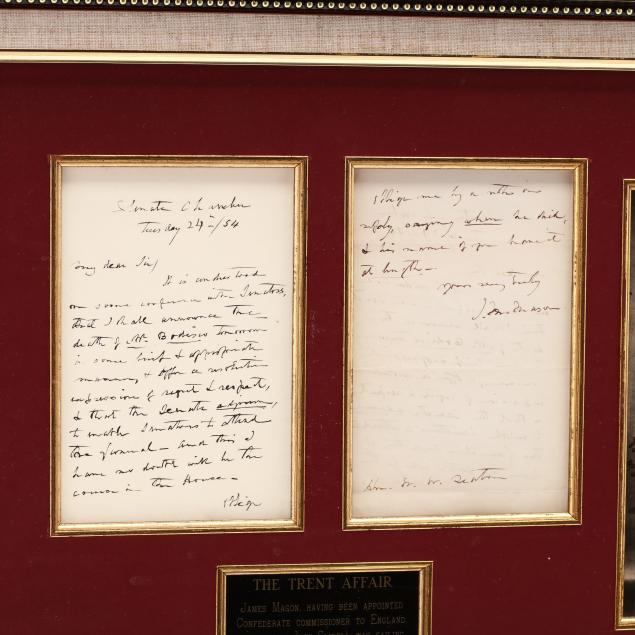 Senate Chamber
Tuesday 24th /54
My dear Sir,
It is understood
on some conference with Senators,
that I shall announce the
death of Mr. Bodisco tomorrow
in some brief & appropriate
manner, & offer a resolution
expression of regret & respect,
& that the Senate adjourn,
to enable Senators to attend
the funeral — and this I
have no doubt will be the
course in the House —
Oblige
Oblige me by a note in
reply, saying when he died,
& his name if you have it
at length —
Yours very truly
J. M. Mason
Hon. W. W. Seaton
THE TRENT AFFAIR
JAMES MASON, HAVING BEEN APPOINTED
CONFEDERATE COMMISSIONER TO ENGLAND,